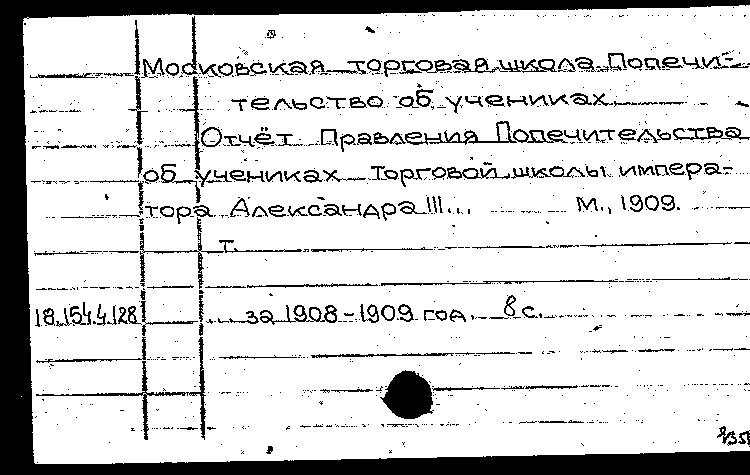 Московская торговая школа Попечи-
тельство об учениках.
Отчёт Правления Попечительства
об учениках Торговой школы импера-
тора Александра III... М., 1909.
т.
18.154.4.128 ... за 1908-1909 год. 8 с.